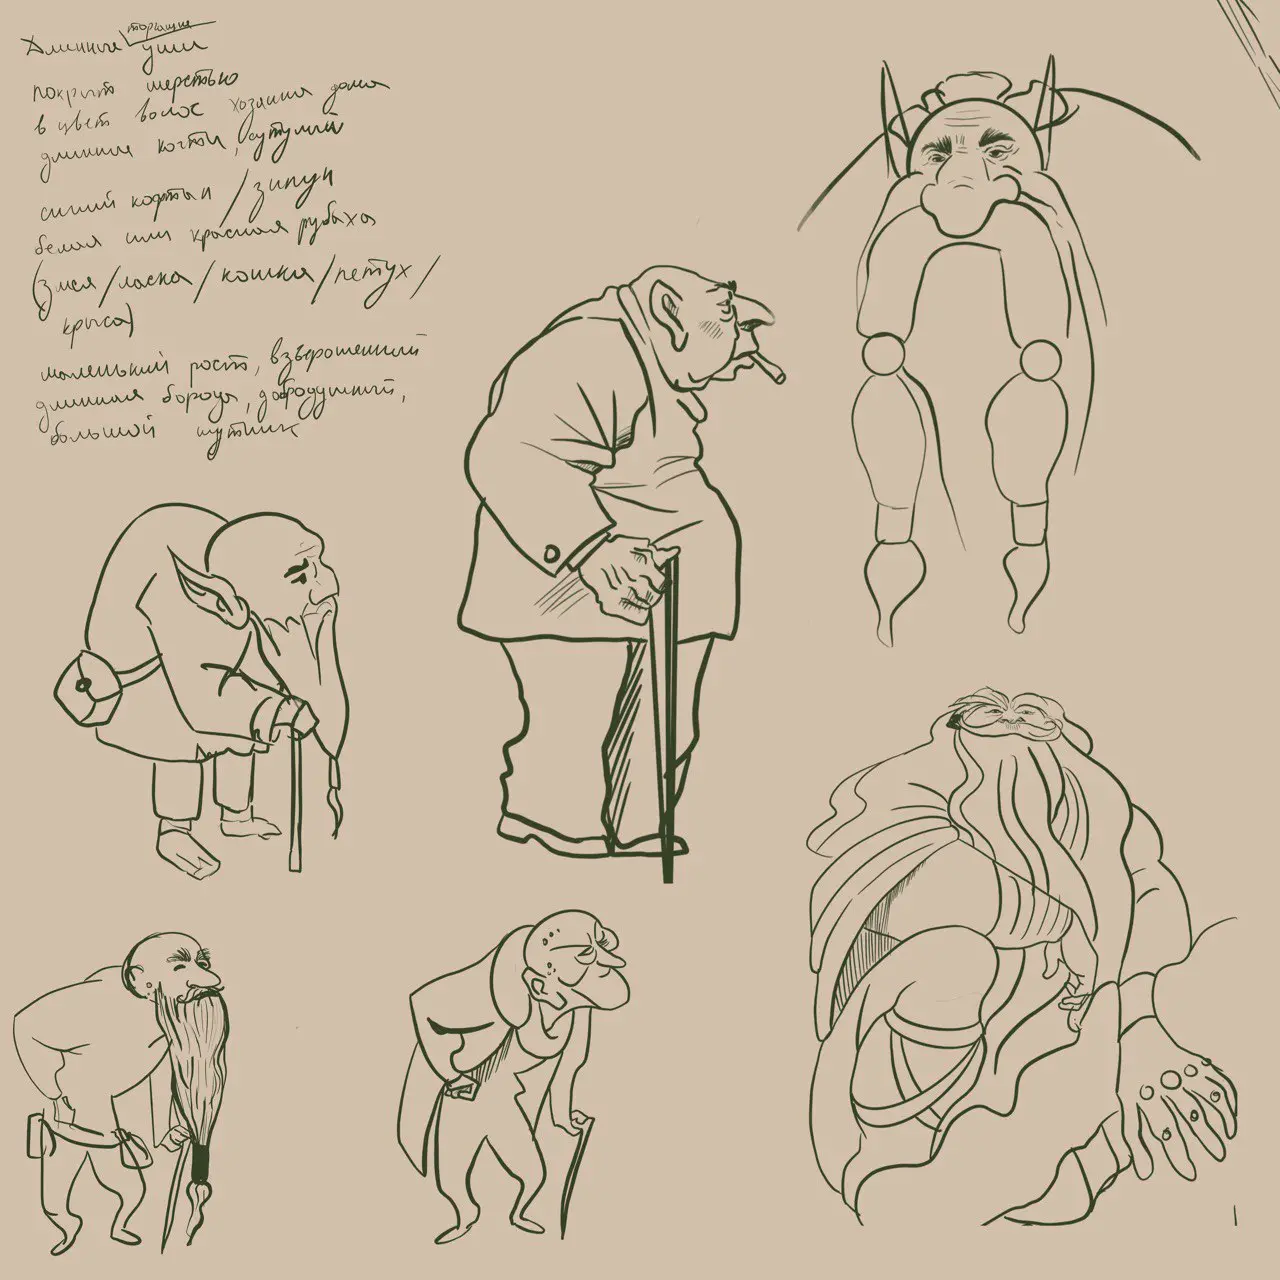 длинные торчащие уши
покрыт шерстью
в цвет волос хозяина дома
длинные когти, сутулый
синий кафтан / зипун
белая или красная рубаха
(змея/ласка/кошка/петух/
крыса)
маленький рост, взъерошенный
длинная борода, добродушный,
большой шутник